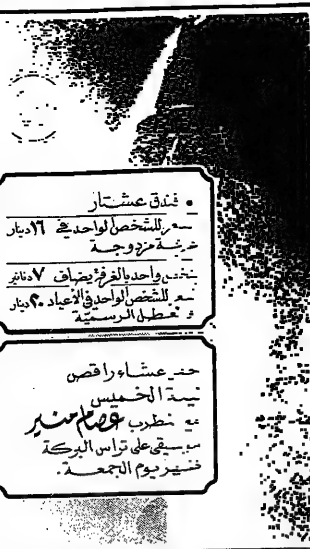 • فندق عشتار
سعر للشخص الواحد في ١٦ دينار
غرفة مزدوجة
شخص واحد بالغرفة يضاف ٧ دنانير
سعر للشخص الواحد في الأعياد ٢٠ دينار
و تعطل الرسمية
حفل عشاء راقص
ليلة الخميس
مع مطرب عصام منير
موسيقى على تراس البركة
ظهر يوم الجمعة.